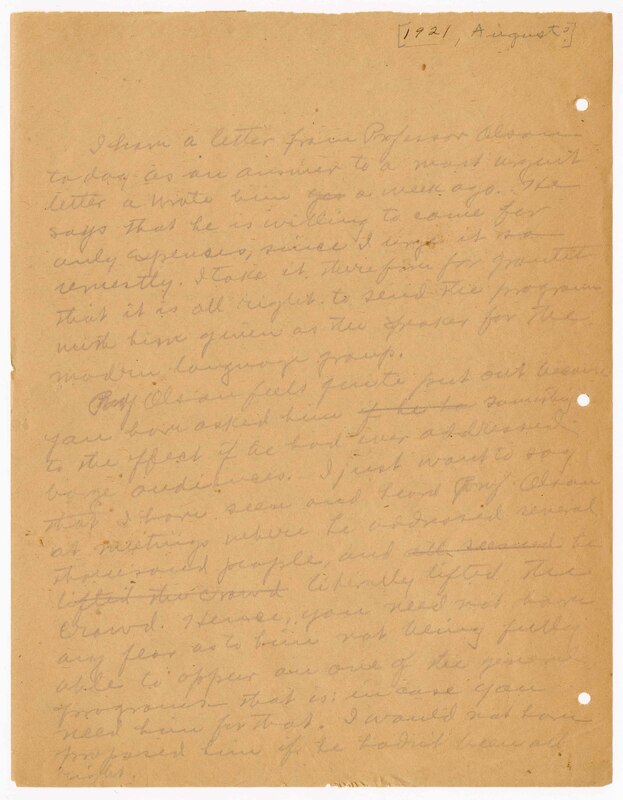 [1921, August?]
I have a letter from Professor Olson
today as an answer to a most urgent
letter I wrote him a week ago. He
says that he is willing to come for
only expenses, since I urge it so
ernestly. I take it therefore for granted
that it is all right to send the program
with him given as the speaker for the
modern language group.
Prof Olson feels quite put out because
you have asked him if he ha something
to the effect if he had ever addressed
large audiences. I just want to say
that I have seen and heard Prof Olson
at meetings where he addressed several
thousand people, and all seemed he
lifted the crowd literally lifted the
crowd. Hence, you need not have
any fear as to him not being fully
able to appear on one of the general
programs that is in case you
need him for that. I would not have
proposed him if he hadn't been all
right.